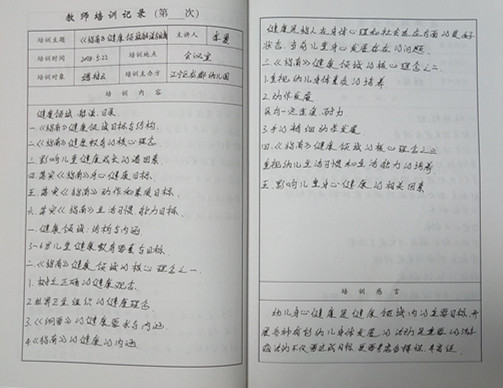 教师培训记录（第 次）
培训主题 《指南》健康领域解读
主讲人
培训时间 2018.5.22 培训地点 会议室
培训对象 培训主办方 幼儿园
培训内容
健康领域 解读 目录
一.《指南》健康领域目标与结构.
二.《指南》健康教育的核心理念.
三.影响儿童健康成长的诸因素
四.落实《指南》身心健康目标.
五.落实《指南》动作和发展目标.
六.落实《指南》生活习惯.能力目标.
一.健康领域:结构与内涵
3-6岁儿童健康教育要素与目标.
二.《指南》健康领域的核心理念之一.
1.树立正确的健康观念.
2.世界卫生组织的健康理念
3.《纲要》的健康要求与内涵
4.《指南》的健康的内涵
健康是指人在身体心理和社会适应方面的良好
状态,当前儿童身心发展存在的问题.
三.《指南》健康领域的核心理念之二.
1.重视幼儿身体素质的培养
2.动作发展
具有一定速度,耐力
3.手的精细动作发展
四.《指南》健康领域的核心理念之三
重视幼儿生活习惯和生活能力的培养
五.影响儿童身心健康的相关因素
培训感言
幼儿身心健康是健康领域内的主要目标,开
展各种有利幼儿身体发展的活动是重要的